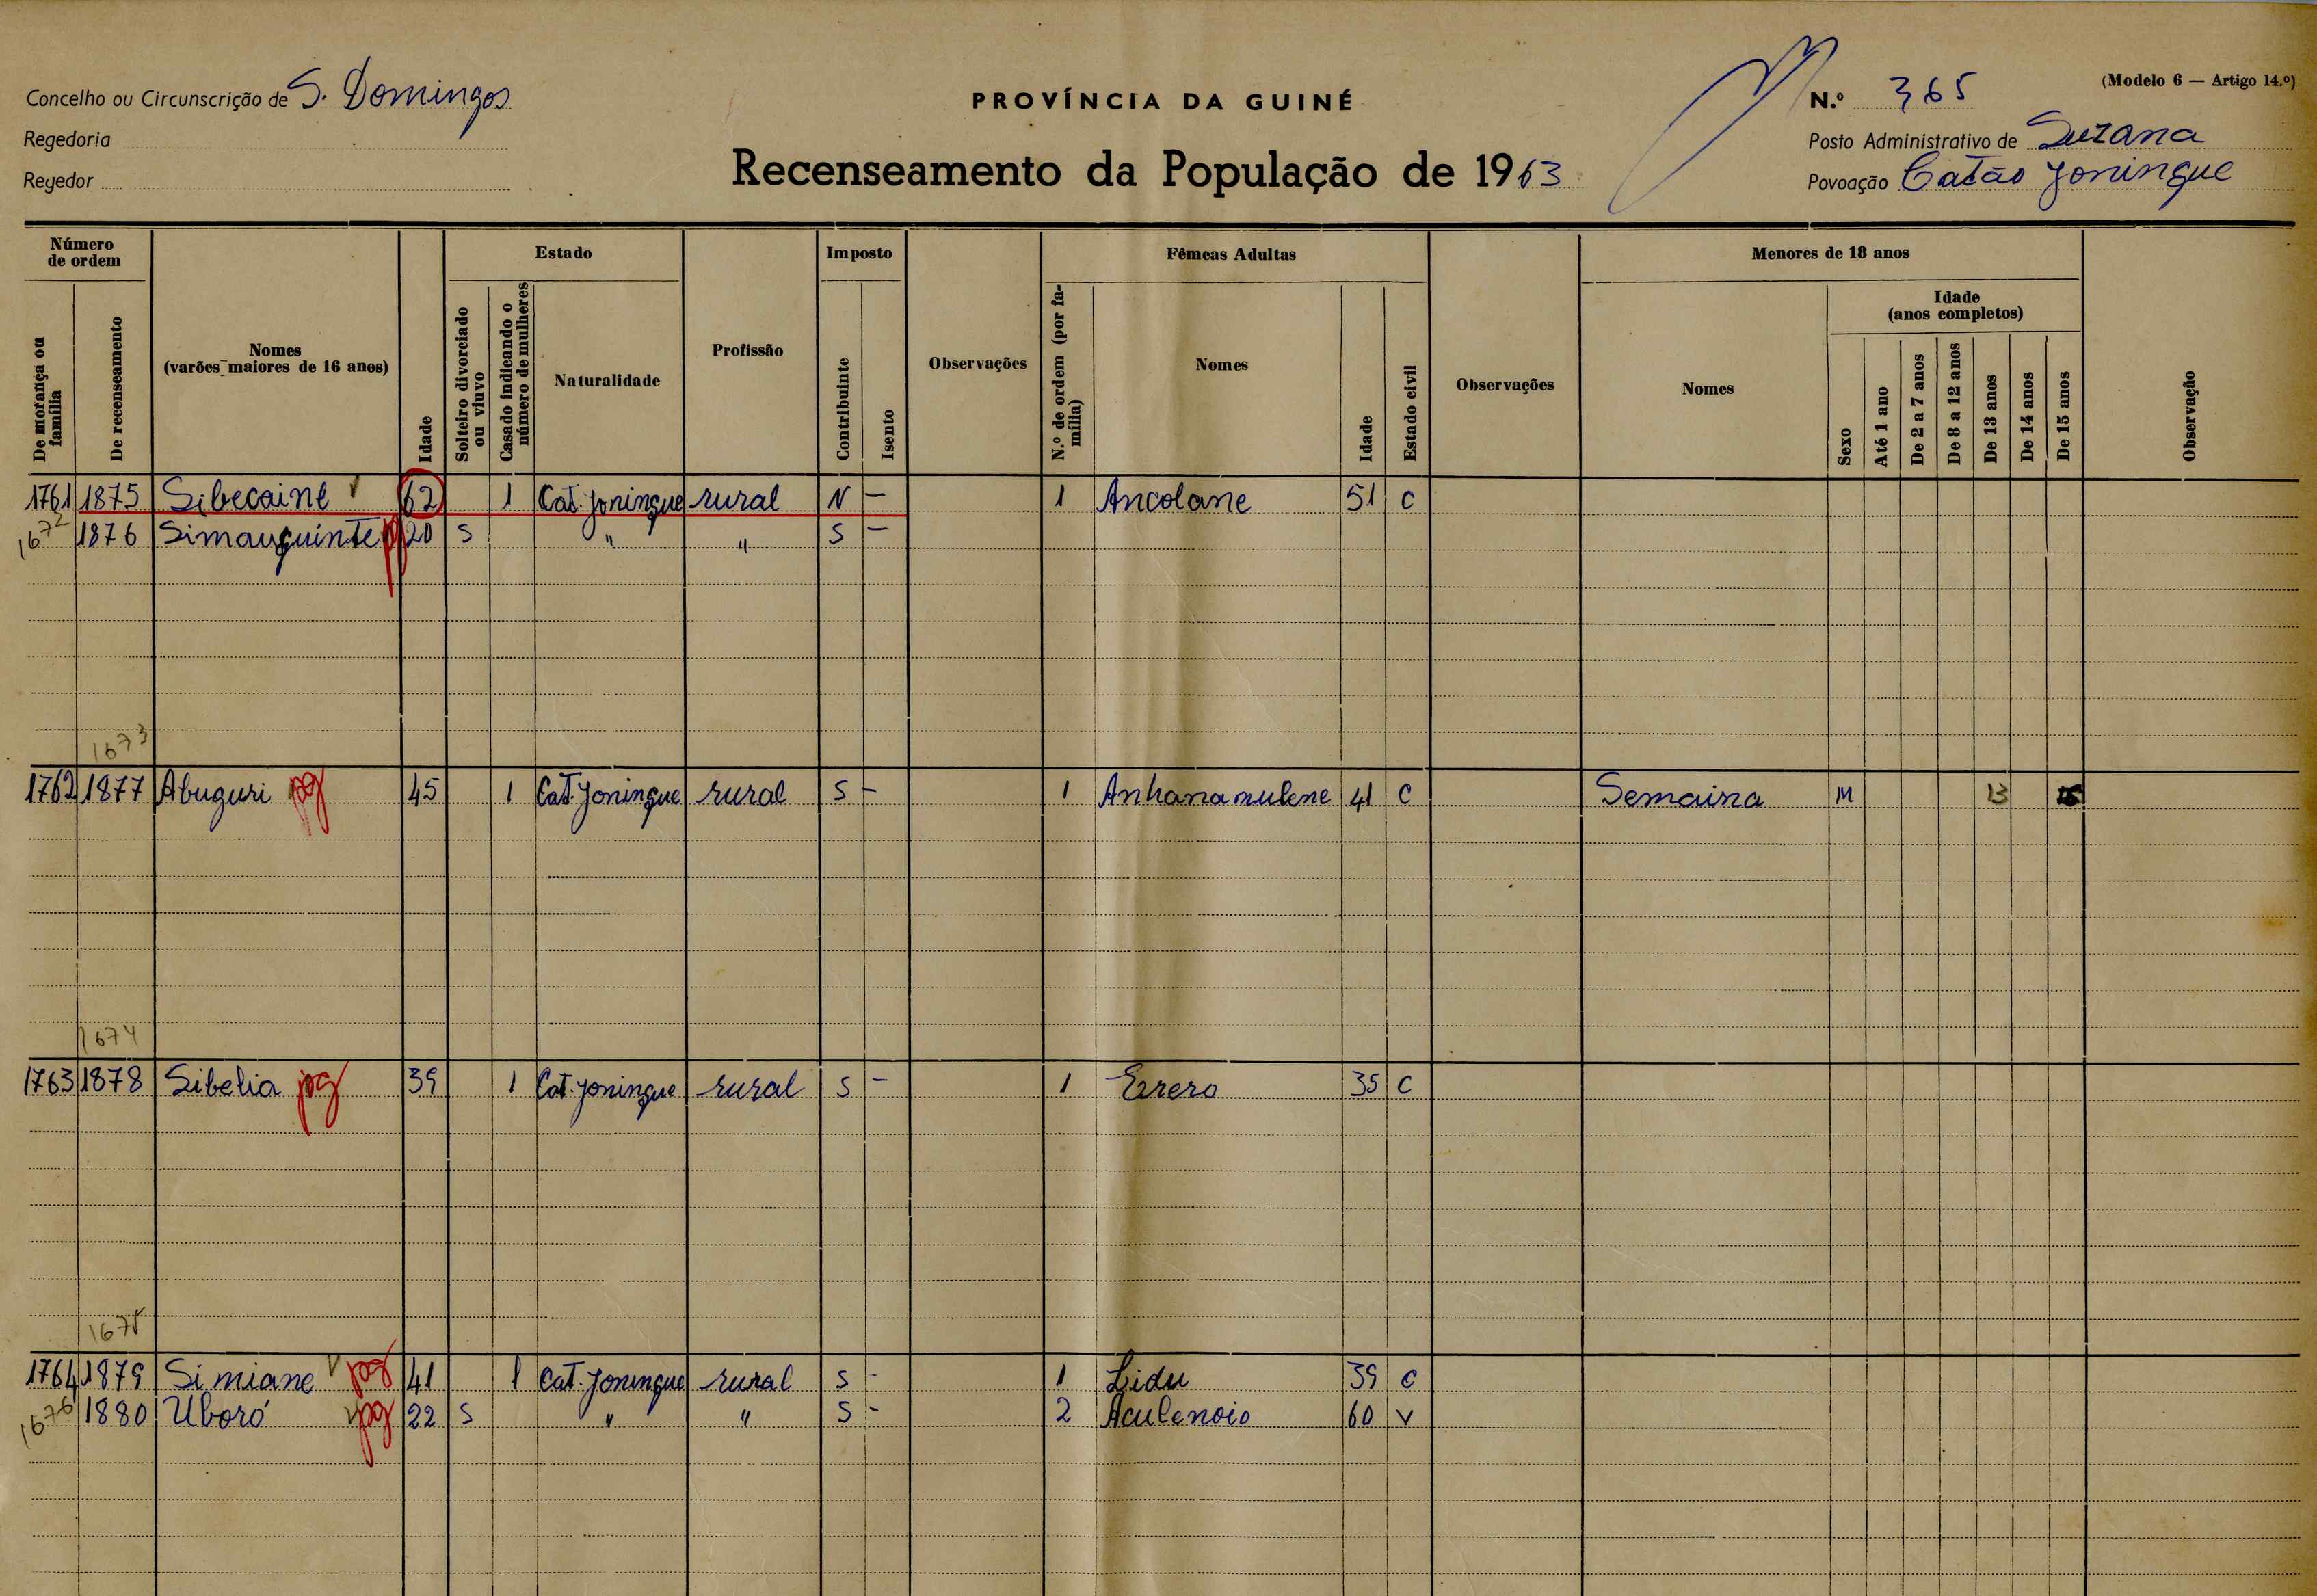 Concelho ou Circunscrição de S. Domingos
Regedoria
Regedor
PROVÍNCIA DA GUINÉ
Recenseamento da População de 1963
(Modelo 6 — Artigo 14.º)
N.º 365
Posto Administrativo de Suzana
Povoação Catão Joningue
Número de ordem
De morança ou família
De recenseamento
Nomes
(varões maiores de 16 anos)
Idade
Estado
Solteiro divorciado ou viuvo
Casado indicando o número de mulheres
Naturalidade
Profissão
Imposto
Contribuinte
Isento
Observações
Fêmeas Adultas
N.º de ordem (por família)
Nomes
Idade
Estado civil
Observações
Menores de 18 anos
Nomes
Sexo
Idade
(anos completos)
Até 1 ano
De 2 a 7 anos
De 8 a 12 anos
De 13 anos
De 14 anos
De 15 anos
Observação
1761 1875 Sibecaine 62 1 Cat. Joningue rural N — 1 Ancolane 51 C
1672 1876 Simauquinte 20 S " " S —
1673
1762 1877 Abuguri pg 45 1 Cat. Joningue rural S — 1 Anhanamulene 41 C Semaina M 13
1674
1763 1878 Sibelia pg 39 1 Cat. Joningue rural S — 1 Errero 35 C
1675
1764 1879 Simiane pg 41 1 Cat. Joningue rural S - 1 Lidu 39 C
1676 1880 Uboró pg 22 S " " S - 2 Aculenoio 60 V